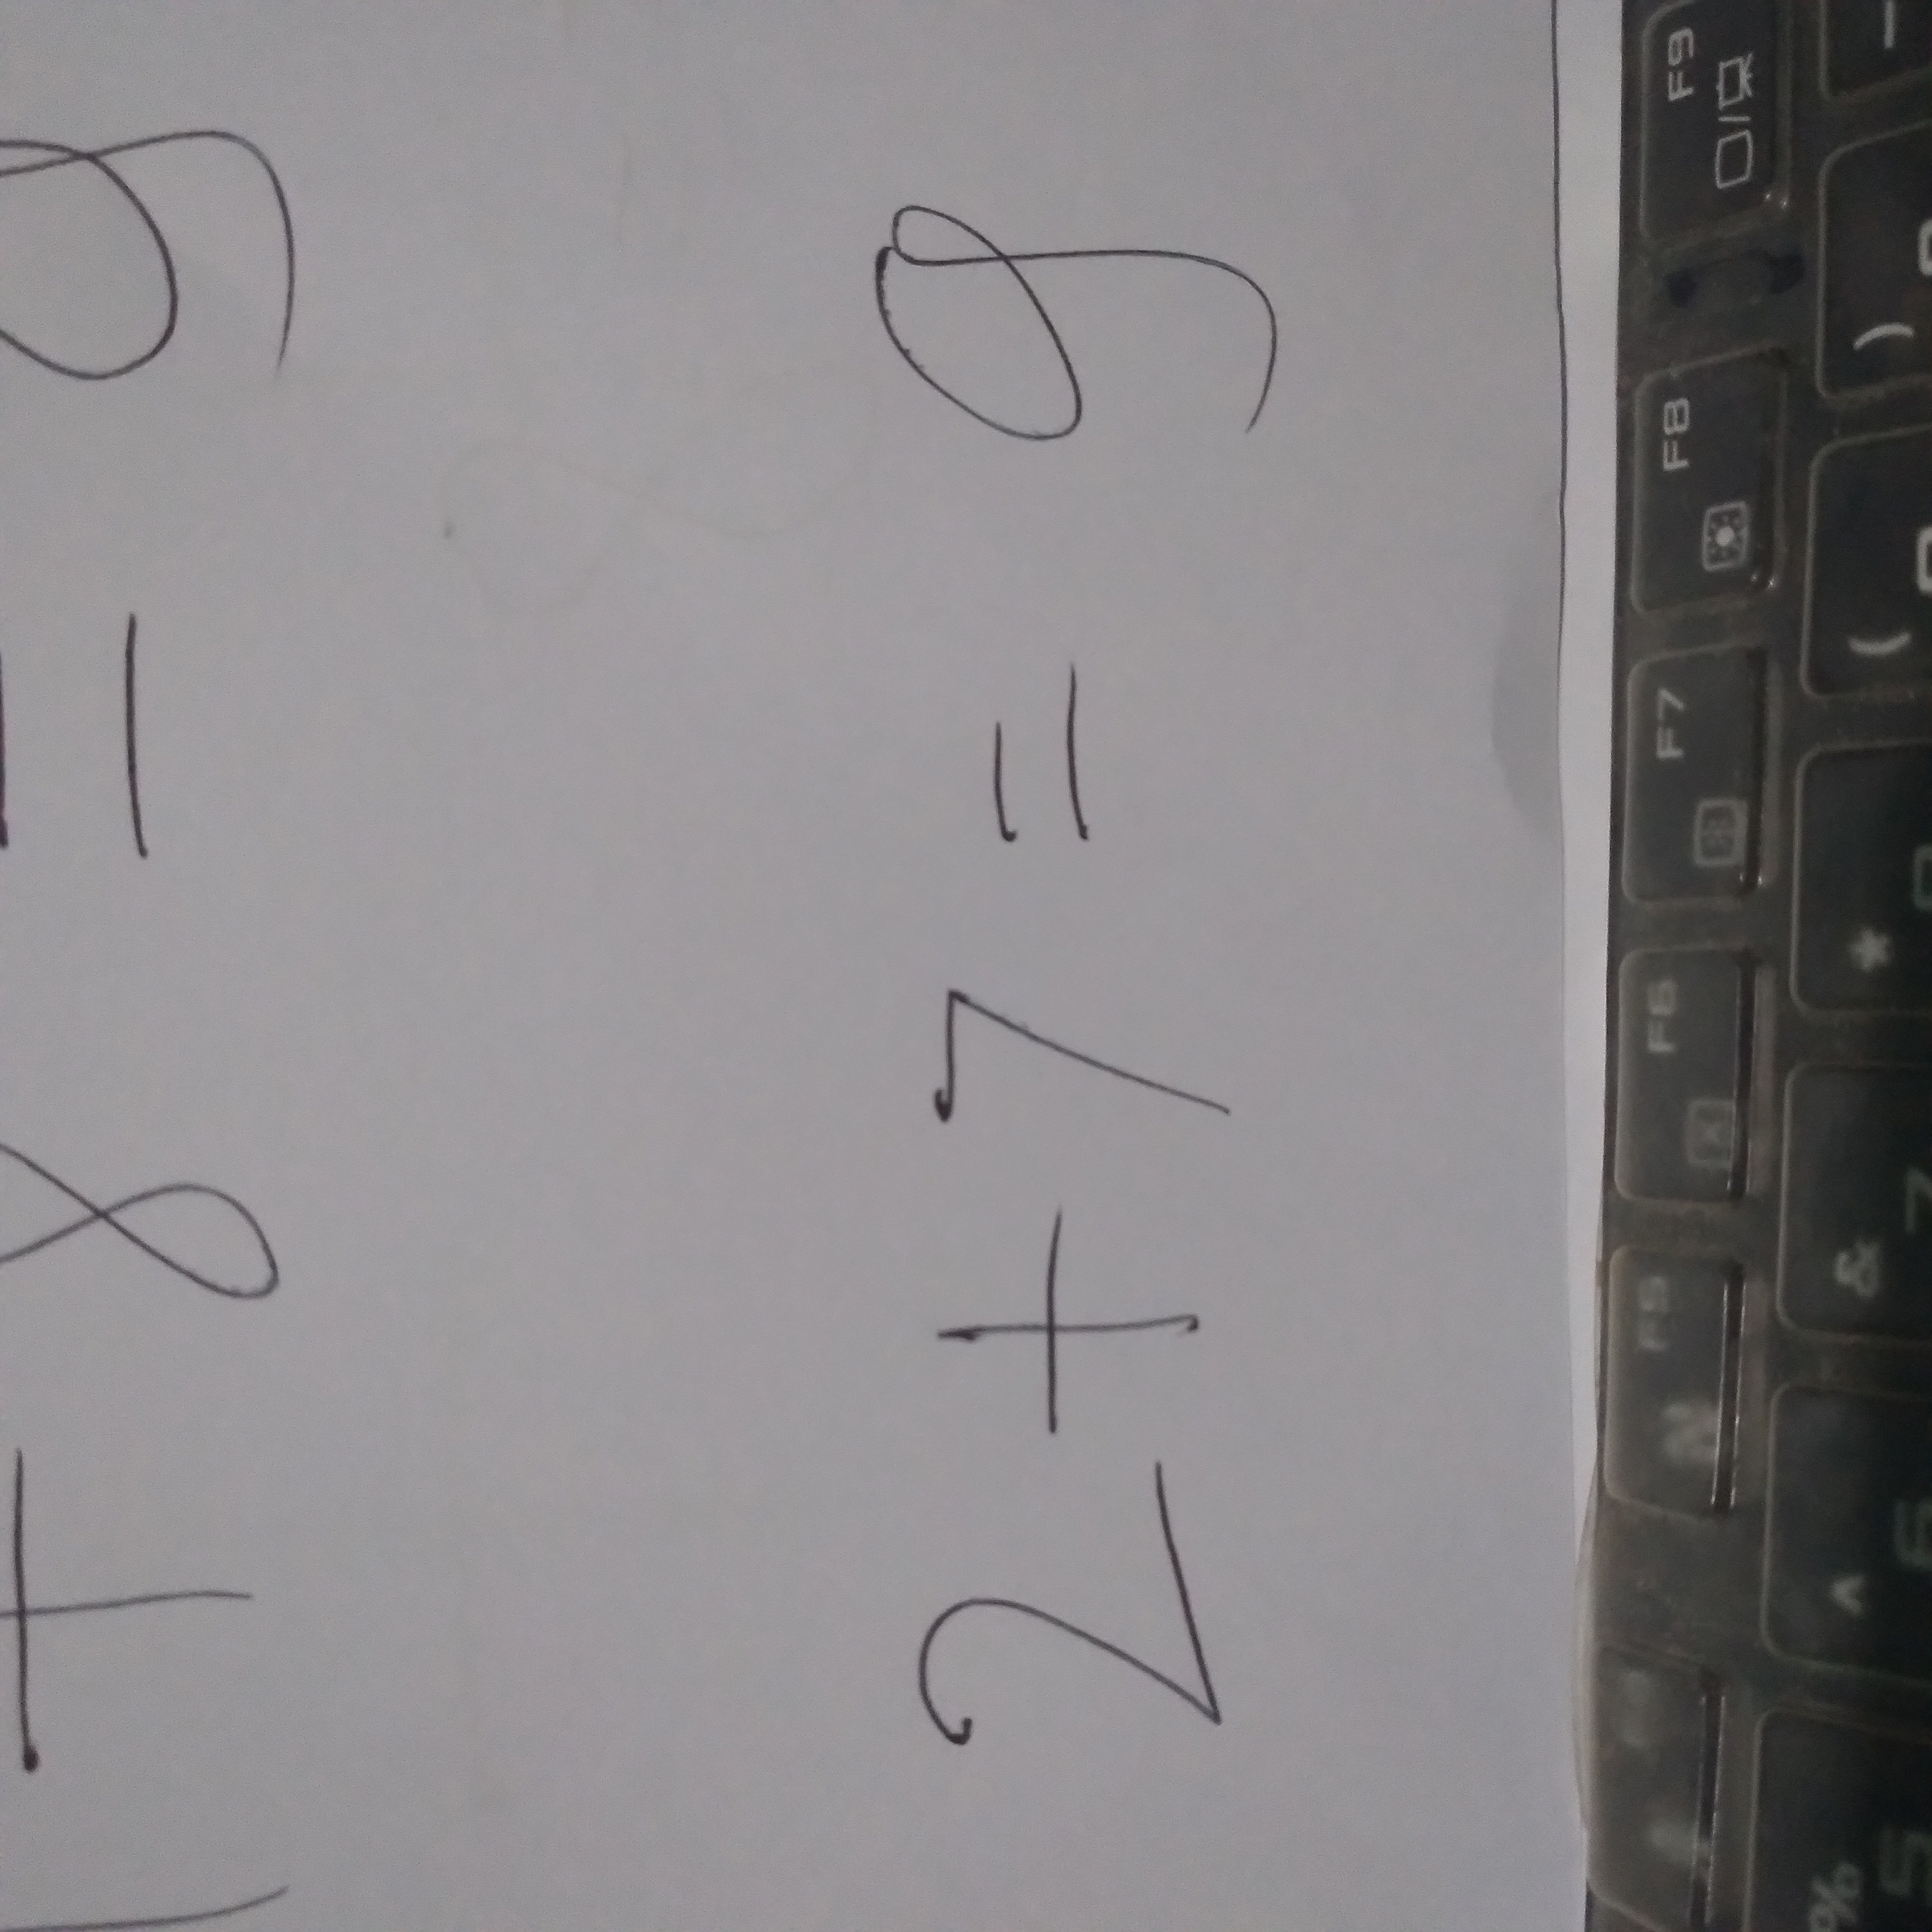 1 + 8 = 9
2 + 7 = 9
F5 F6 F7 F8 F9
% ^ & * ( ) -
5 6 7